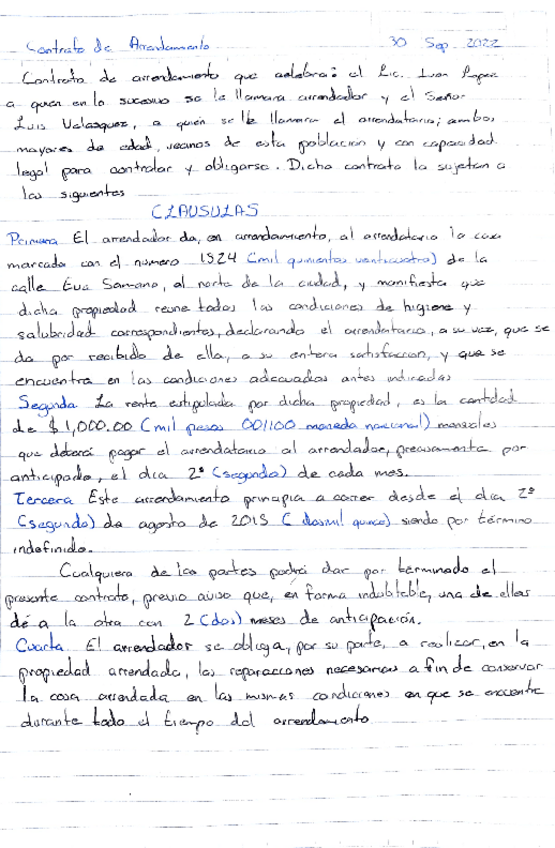 Contrato de Arrendamiento 30 Sep. 2022
Contrato de arrendamiento que celebra: el Lic. Ivan Lopez
a quien en lo sucesivo se le llamara arrendador y el Señor
Luis Velasquez, a quien se le llamara el arrendatario; ambos
mayores de edad, vecinos de esta poblacion y con capacidad
legal para contratar y obligarse. Dicho contrato lo sujetan a
las siguientes
CLAUSULAS
Primera El arrendador da, en arrendamiento, al arrendatario la casa
marcada con el numero 1524 (mil quinientos venticuatro) de la
calle Eva Samano, al norte de la ciudad, y manifiesta que
dicha propiedad reune todas las condiciones de higiene y
salubridad correspondientes, declarando el arrendatario, a su vez, que se
da por recibido de ella, a su entera satisfaccion, y que se
encuentra en las condiciones adecuadas antes indicadas
Segunda La renta estipulada por dicha propiedad, es la cantidad
de $1,000.00 (mil pesos 00/100 moneda nacional) mensuales
que deberá pagar el arrendatario al arrendador, precisamente por
anticipado, el dia 2º (segundo) de cada mes.
Tercera Este arrendamiento principia a correr desde el dia 2º
(segundo) de agosto de 2015 (dosmil quince) siendo por término
indefinido.
Cualquiera de las partes podrá dar por terminado el
presente contrato, previo aviso que, en forma indubitable, una de ellas
dé a la otra con 2 (dos) meses de anticipación.
Cuarta El arrendador se obliga, por su parte, a realizar, en la
propiedad arrendada, las reparaciones necesarias a fin de conservar
la cosa arrendada en las mismas condiciones en que se encuentre
durante todo el tiempo del arrendamiento